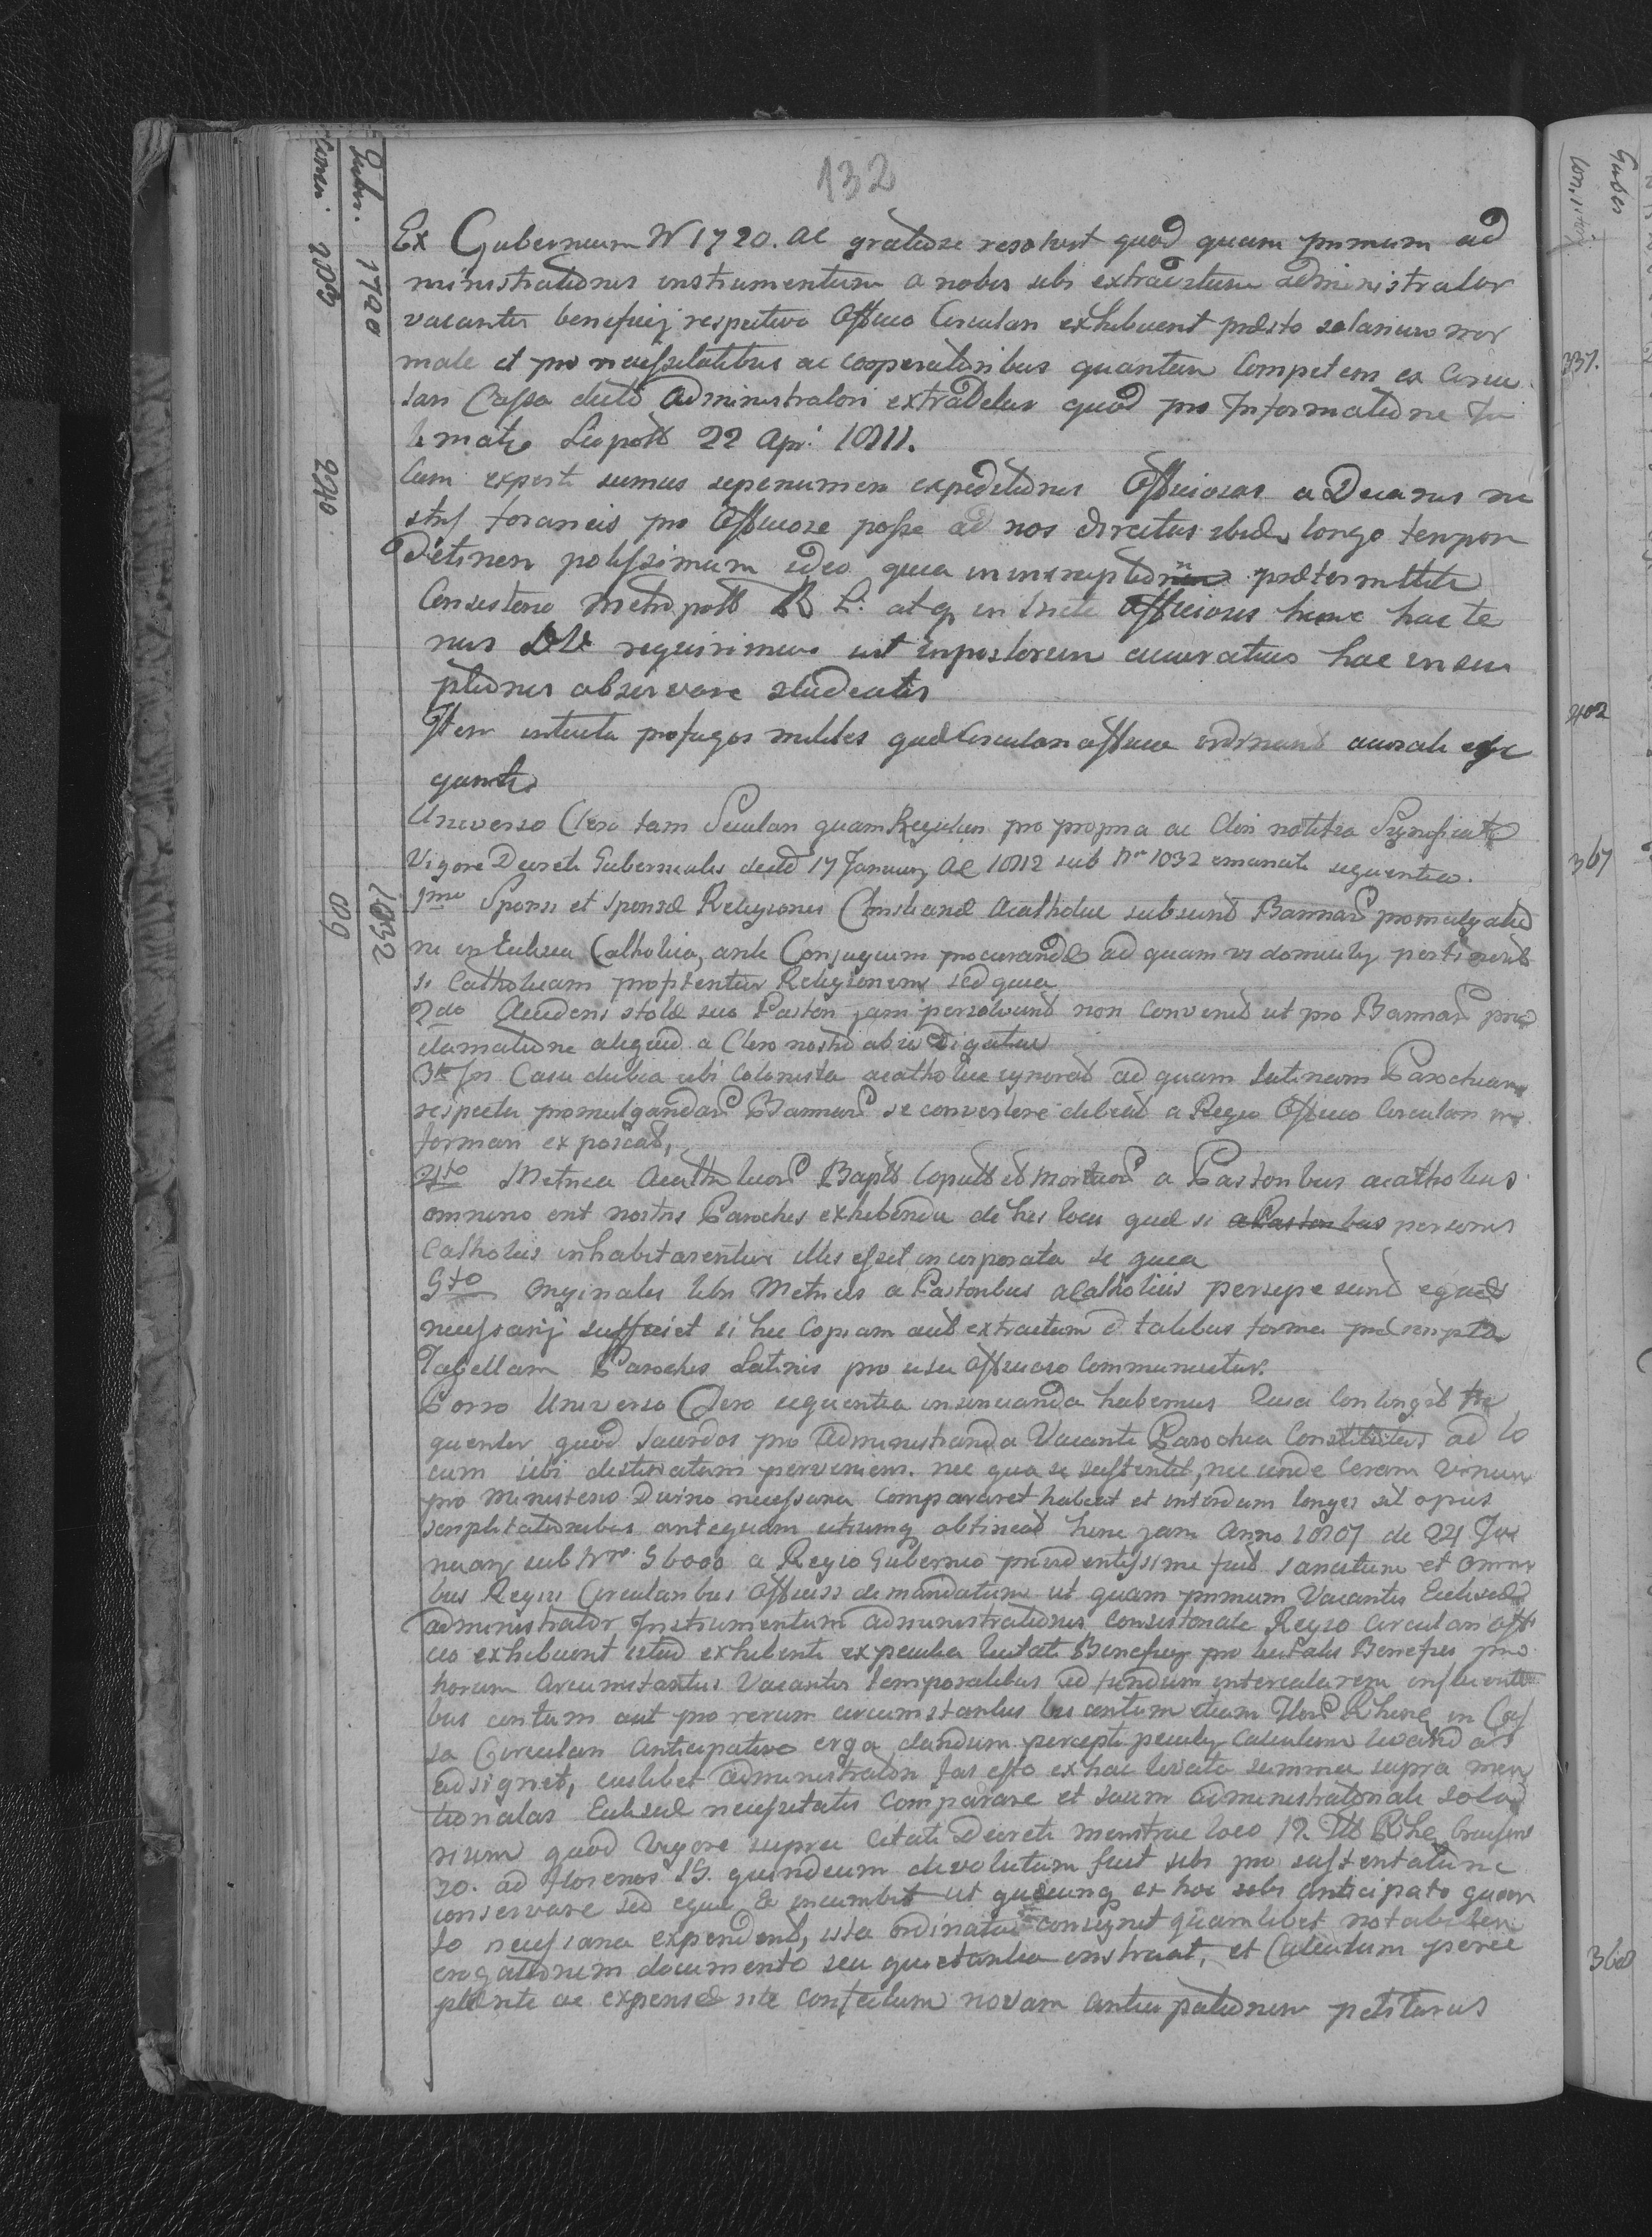 132
Gubern. 1720
Consis.
Ex Gubernium Nr 1720. ac gratiose resolvit quod quam primum ad
ministrationis instrumentum a nobis sibi extraditum administrator
vacantis beneficij respectivo Officio Circulari exhibuerit præsto salarium nor
male et pro necessitatibus ac cooperatoribus quantum Competens ex Circu
lari Cassa dicto Administratori extradetur quod pro Informatione In
timatr Leopoli 22 Apr: 1811.
240
Cum experti sumus sepenumero expeditiones Officiosas a Decanis no
stris foraneis pro Officiose posse ad nos directas ibidem longo tempore
detineri potissimum ideo quia in inscriptione prætermittitur
Consistorio Metropolit R L: atq in
nus requirimus ut inposterum accuratius hac inscri
ptionis observare studeatis
Item intuitu profugos milites quæ Circulari officia ordinant accurate exe
quantur
Universo Clero tam Seculari quam Regulari pro propria ac Cleri notitia Significatur
Vigore Decreti Gubernialis dicto 17 Januarij Ac 1812 sub Nro 1032 emanati sequentia.
1032
89
1mo Sponsi et Sponsæ Religionis Christianæ Acatholicæ subsunt Bannar promulgatio
ni in Eclesia Catholica, ante Conjugium procurandæ ad quam vi domicilij pertinerent
si Catholicam profitentur Religionem sed quia
2do Accidens stolæ suo Pastori jam persolvunt non Convenit ut pro Bannar pro
clamatione aliquid a Clero nostro ab iis exigatur
3tio In Casu dubio ubi Colonista acatholicæ ignorat ad quam Latinam Parochiam
respectu promulgandar Bannar se convertere debeat a Regio Officio Circulari in
formari exposcat,
4to Metrica Acatholicor Bapt Copult et Mortuor a Pastoribus acatholicis
omnino ent nostris Parochis exhibenda de his locis quæ si a Pastoribus personis
Catholicis inhabitarentur illis esset incorporata se quia
5to originales libri Metrices a Pastoribus acatholicis persepe sunt
necessarij sufficiet si hic Copiam aut extractum d talibus forma præscripta
Tabellam Parochis Latinis pro usu officioso Communicetur.
Porro Universo Clero sequentia insinuanda habemus Quia Contingit fre
quenter quod Sacerdos pro Administranda Vacante Parochia Constitutus ad lo
cum sibi destinatum perveniens. nec qua se sustentet, nec unde Ceram Vinum
pro Ministerio Divino necessaria Compararet habeat et interdum longis sit opus
scriptitationibus antequam utrumq obtineat hinc jam Anno 1807 de 24 Ja
nuarij sub Nro. 56000 a Regio Gubernio providentissime fuit Sancitum et omni
bus Regiis Circularibus Officiis demandatum ut quam primum Vacantis Eclesiæ
administrator Instrumentum administrationis consistoriale Regio Circulari offi
cio exhibuerit istud exhibenti ex pecunia Beneficij pro Beneficij pro
horum Circumstantiis Vacantis temporalibus ad fundum intercalarem influenti
bus centum aut pro rerum circumstantiis bis centum etiam flor Rhen in Cas
sa Circulari Anticipative erga dandum percepti pecuniæ Calculum
adsignet, cuilibet administratori fas esto ex hac levata summa supra men
tionatas Eclesiæ necessitates Comparare et Suum administratoriale sola
rium quod Vigore supra Citati Decreti menstrue loco 12
30. ad florenos 15. quindecim devolutum fuit sibi pro sustentatione
conservare sed eque Ei incumbit ut quæcunq ex hoc sibi anticipato quan
to necessaria expendent, ista ordinate consignet quamlibet notabilem
erogationem documento seu quietantia instruat, et Calculum perce
ptæ rite ac expensæ rite confectum novam anticipationem petiturus
Guber
Consistori
337.
402
367
368